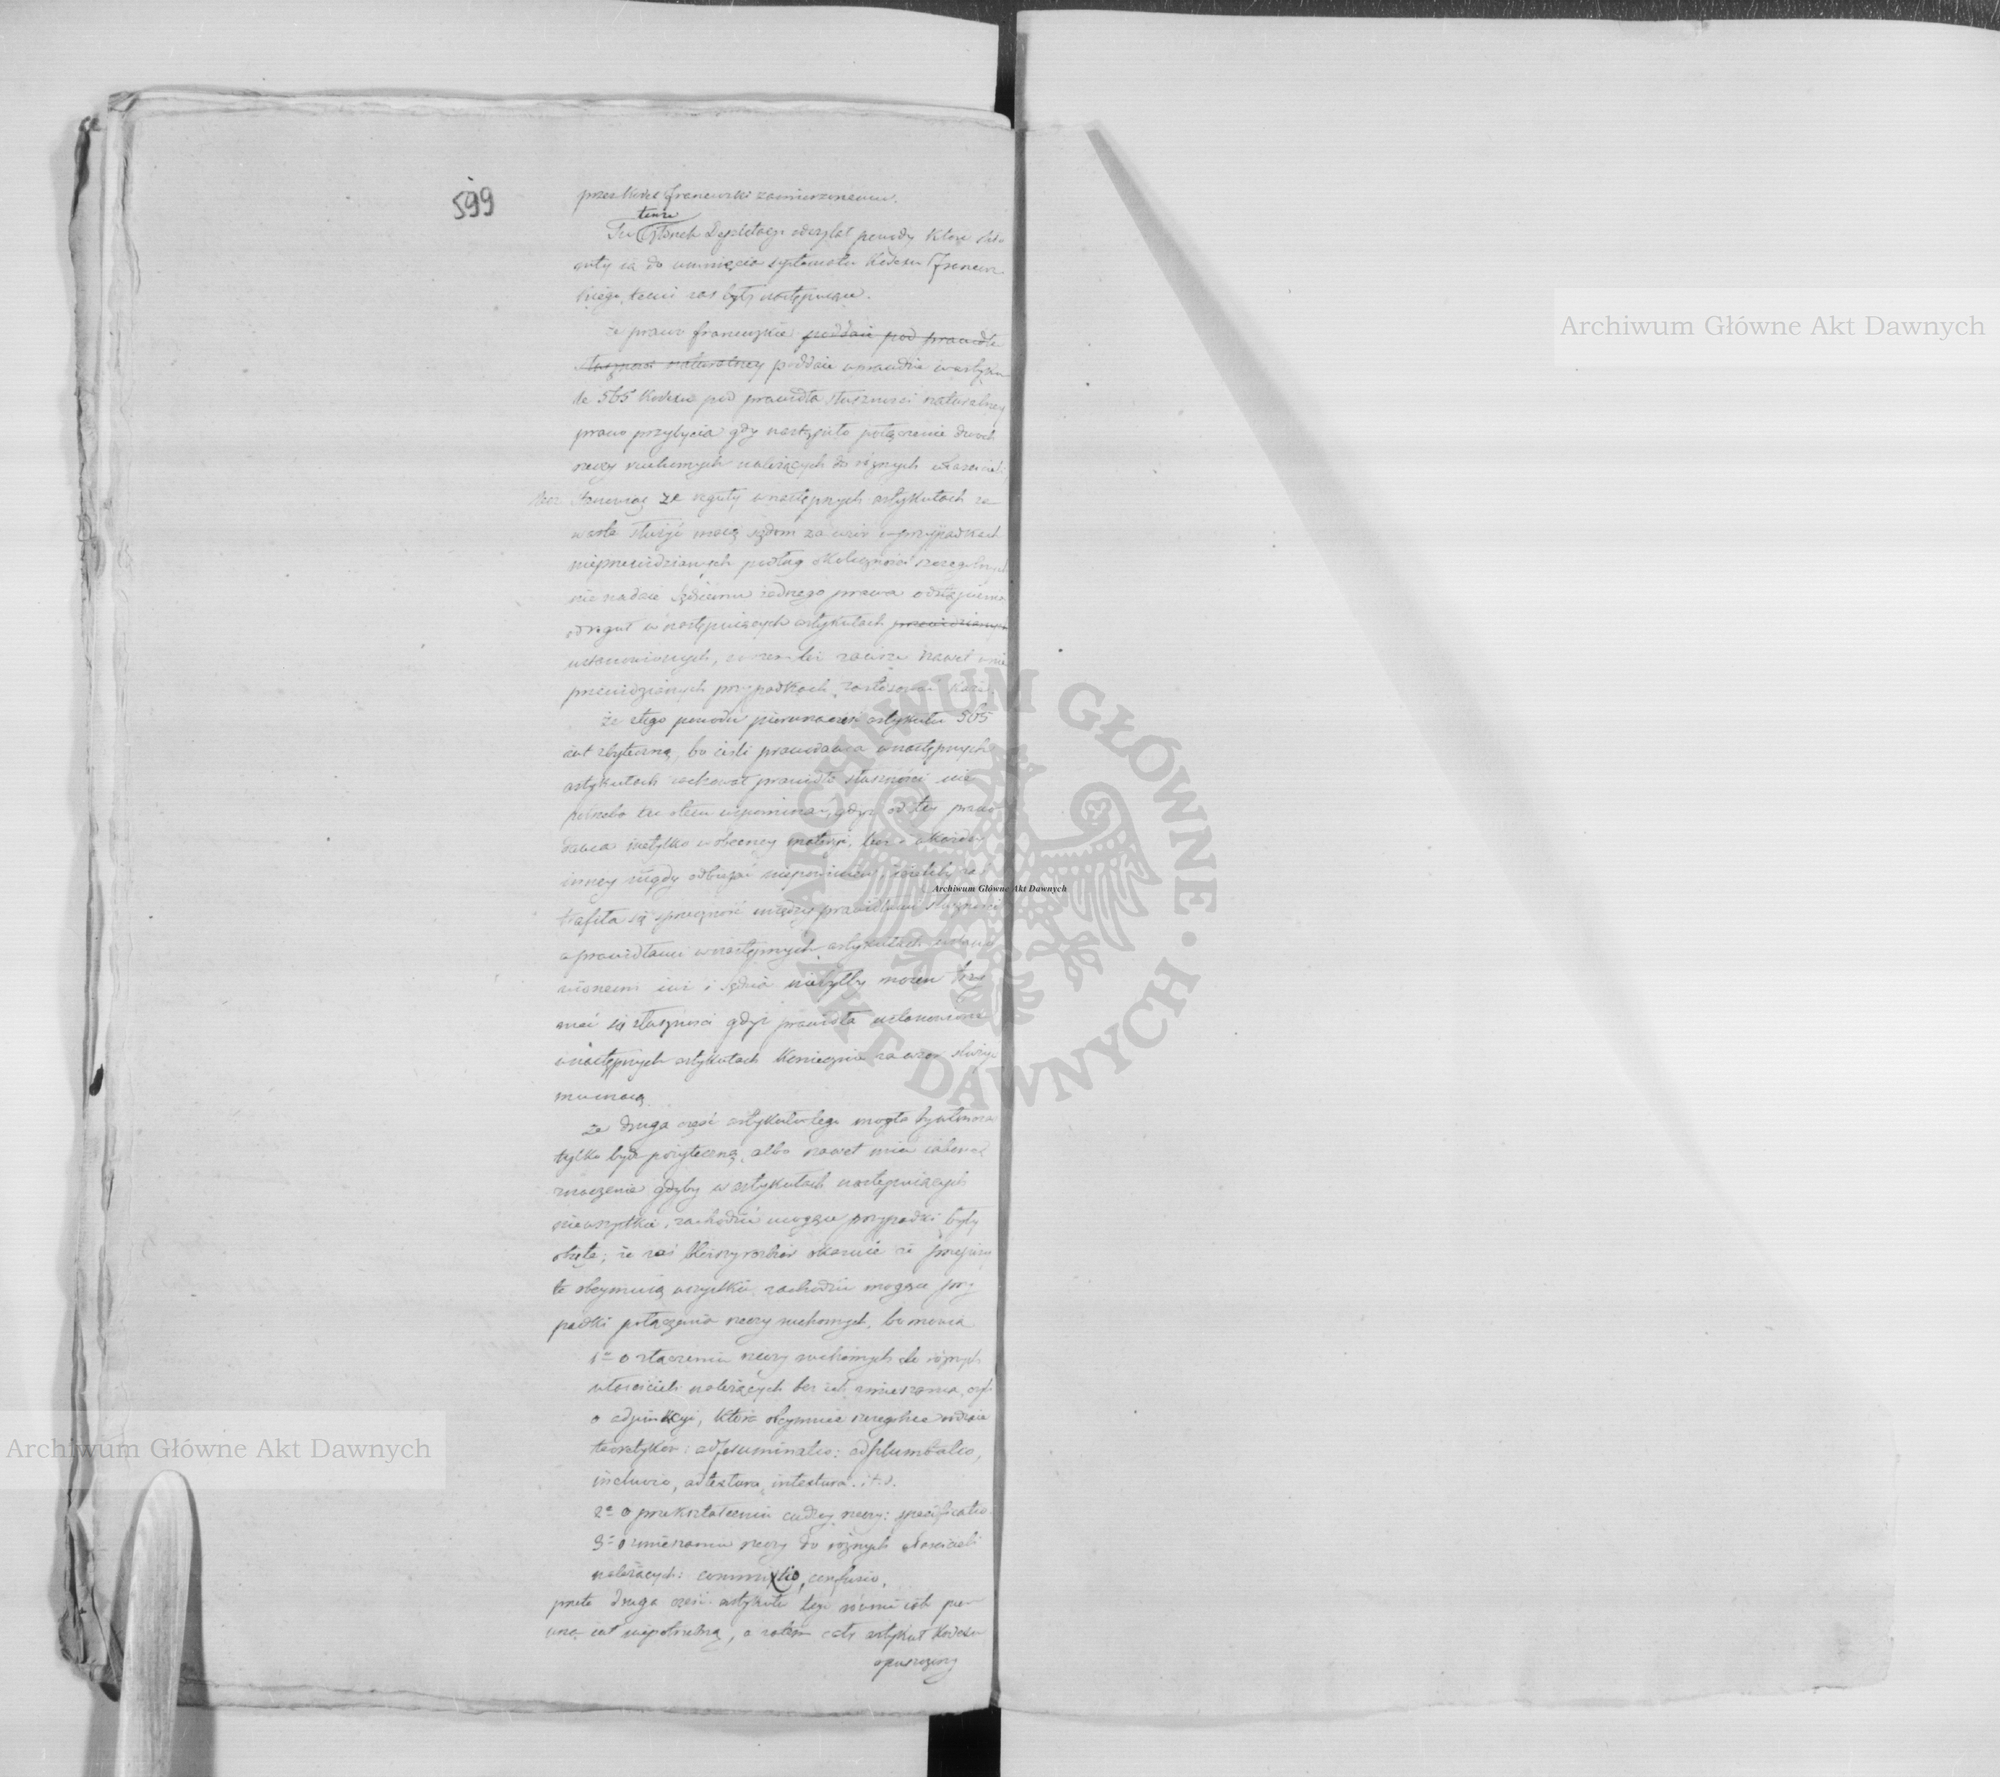 599
przez Kodex francuzki zamierzonemu.
tenże
Tu Członek Deputacyi odczytał powody które słu
żyły iá do usunięcia systematu Kodexu francuz
kiego, temi zas były następuiące.
że prawo francuzkie poddaie pod prawidła
słuszności naturalney poddaie wprawdzie w artyku
le 565 Kodexu pod prawidła słuszności naturalney
prawo przybycia gdy nastąpiło połączenie dwoch
rzeczy ruchomych należących do różnych właścicieli,
lecz stanowiąc że reguły w następnych artykułach za
warte służyć maią sądom za wzór w przypadkach
nieprzewidzianych podług okoliczności szczególnych
nie nadaie Sędziemu żadnego prawa odstąpienia
od reguł w następuiących artykułach przewidzianych
ustanowionych, owszem lei zawsze nawet w nie
przewidzianych przypadkach zastosować każe.
że z tego powodu pierwsza część artykułu 565
iest zbyteczną, bo ieśli prawodawca w następnych
artykułach zachował prawidła słuszności nie
potrzeba tu o tem wspominać, gdyż od tey prawo
dawca nietylko w obecney materyi, lecz w każdey
inney nigdy odbiegać niepowinien, ieżeliby zaś
trafiła się sprzeczność między prawidłami słuszności
a prawidłami w następnych artykułach ustano
wionemi iuż i Sędzia niebyłby mocen trzy
mać się słuszności gdyż prawidła ustanowione
w następnych artykułach koniecznie za wzór służyć
mu maią.
że druga część artykułu tego mogła by wtenczas
tylko być pożyteczną, albo nawet mieć iakieś
znaczenie gdyby w artykułach następuiących
niewszystkie, zachodzić mogące przypadki były
obięte; że zaś bliższy rozbiór okazuie że przepisy
te obeymuią wszystkie zachodzić mogące przy
padki połączenia rzeczy ruchomych, bo mowią
1° o złączeniu rzeczy ruchomych do różnych
właścicieli należących bez ich zmieszania, czyli
o adjunkcyi, która obeymuie szczególne rodzaie
teoretyków: adferuminatio: adplumbatio,
inclusio, adtextura, intextura. i t. d.
2° o przekształceniu cudzey rzeczy: specificatio.
3° o zmieszaniu rzeczy do różnych właścicieli
należących: commixtio, confusio,
przeto druga część artykułu tego równie iak pier
wsza iest niepotrzebną, a zatem cały artykuł Kodexu
opuszczony
Archiwum Główne Akt Dawnych
Archiwum Główne Akt Dawnych
Archiwum Główne Akt Dawnych
ARCHIWUM GŁÓWNE • AKT DAWNYCH •